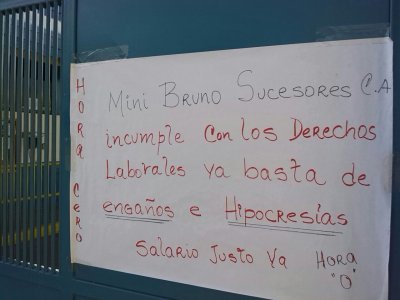 HORA CERO
Mini Bruno Sucesores C.A
incumple Con los Derechos
Laborales Ya basta de
engaños e Hipocresías
Salario Justo Ya Hora
"O"